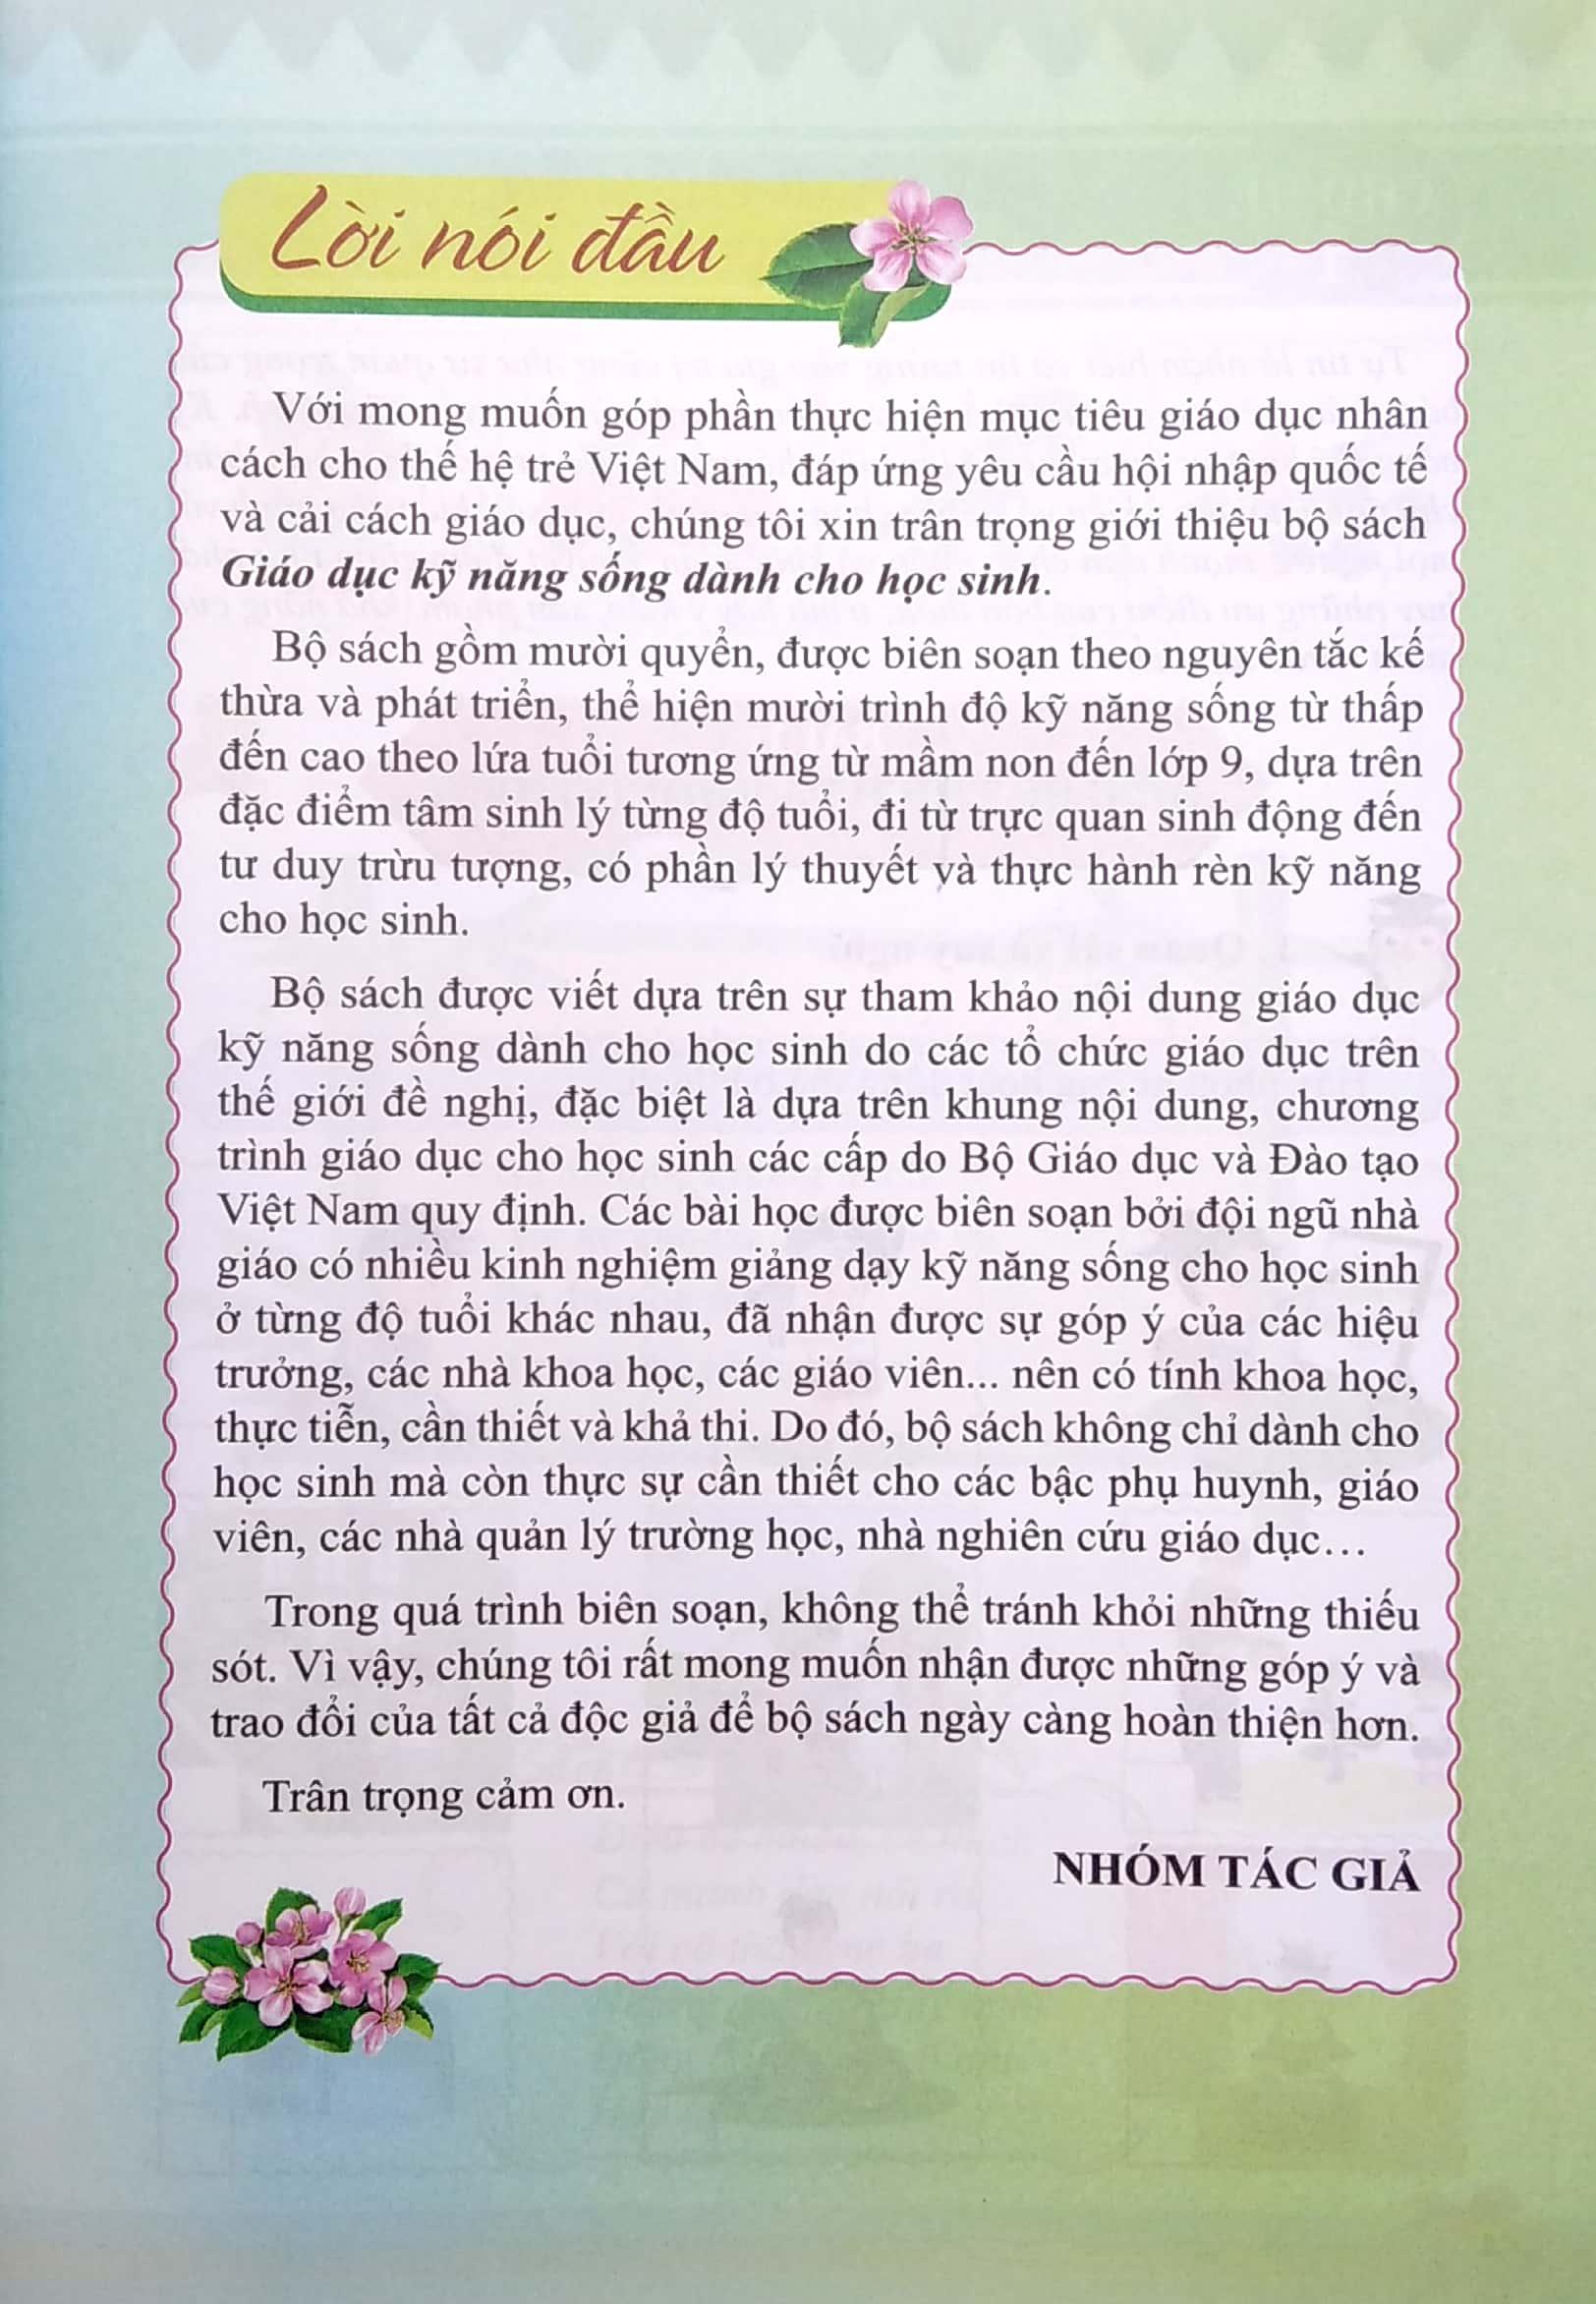 Lời nói đầu
Với mong muốn góp phần thực hiện mục tiêu giáo dục nhân
cách cho thế hệ trẻ Việt Nam, đáp ứng yêu cầu hội nhập quốc tế
và cải cách giáo dục, chúng tôi xin trân trọng giới thiệu bộ sách
Giáo dục kỹ năng sống dành cho học sinh.
Bộ sách gồm mười quyển, được biên soạn theo nguyên tắc kế
thừa và phát triển, thể hiện mười trình độ kỹ năng sống từ thấp
đến cao theo lứa tuổi tương ứng từ mầm non đến lớp 9, dựa trên
đặc điểm tâm sinh lý từng độ tuổi, đi từ trực quan sinh động đến
tư duy trừu tượng, có phần lý thuyết và thực hành rèn kỹ năng
cho học sinh.
Bộ sách được viết dựa trên sự tham khảo nội dung giáo dục
kỹ năng sống dành cho học sinh do các tổ chức giáo dục trên
thế giới đề nghị, đặc biệt là dựa trên khung nội dung, chương
trình giáo dục cho học sinh các cấp do Bộ Giáo dục và Đào tạo
Việt Nam quy định. Các bài học được biên soạn bởi đội ngũ nhà
giáo có nhiều kinh nghiệm giảng dạy kỹ năng sống cho học sinh
ở từng độ tuổi khác nhau, đã nhận được sự góp ý của các hiệu
trưởng, các nhà khoa học, các giáo viên... nên có tính khoa học,
thực tiễn, cần thiết và khả thi. Do đó, bộ sách không chỉ dành cho
học sinh mà còn thực sự cần thiết cho các bậc phụ huynh, giáo
viên, các nhà quản lý trường học, nhà nghiên cứu giáo dục…
Trong quá trình biên soạn, không thể tránh khỏi những thiếu
sót. Vì vậy, chúng tôi rất mong muốn nhận được những góp ý và
trao đổi của tất cả độc giả để bộ sách ngày càng hoàn thiện hơn.
Trân trọng cảm ơn.
NHÓM TÁC GIẢ